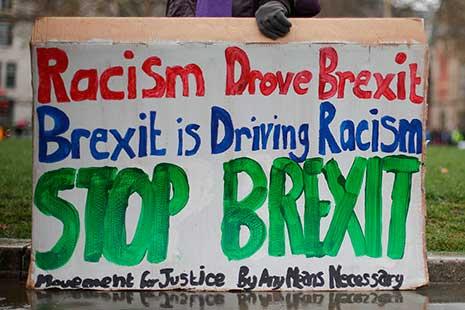 Racism Drove Brexit
Brexit is Driving Racism
STOP BREXIT
Movement for Justice By Any Means Necessary